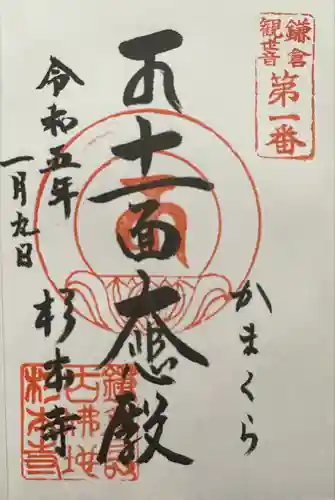 鎌倉
観世音
第一番
十一面大悲殿
かまくら
令和五年
一月九日
杉本寺